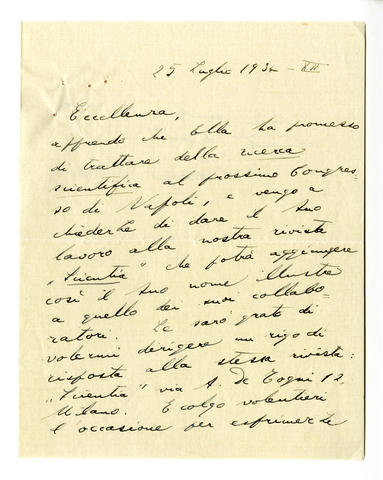 25 Luglio 1934 - XII
Eccellenza,
apprendo che Ella ha promesso
di trattare della ricerca
scientifica al prossimo Congres-
so di Napoli, e vengo a
chiederLe di dare il Suo
lavoro alla nostra rivista
"Scientia" che potrà aggiungere
così il Suo nome illustre
a quello dei suoi collabo-
ratori. Le sarò grato di
volermi dirigere un rigo di
risposta alla stessa rivista:
"Scientia" via A. De Togni 12,
Milano. E colgo volentieri
l'occasione per esprimerLe